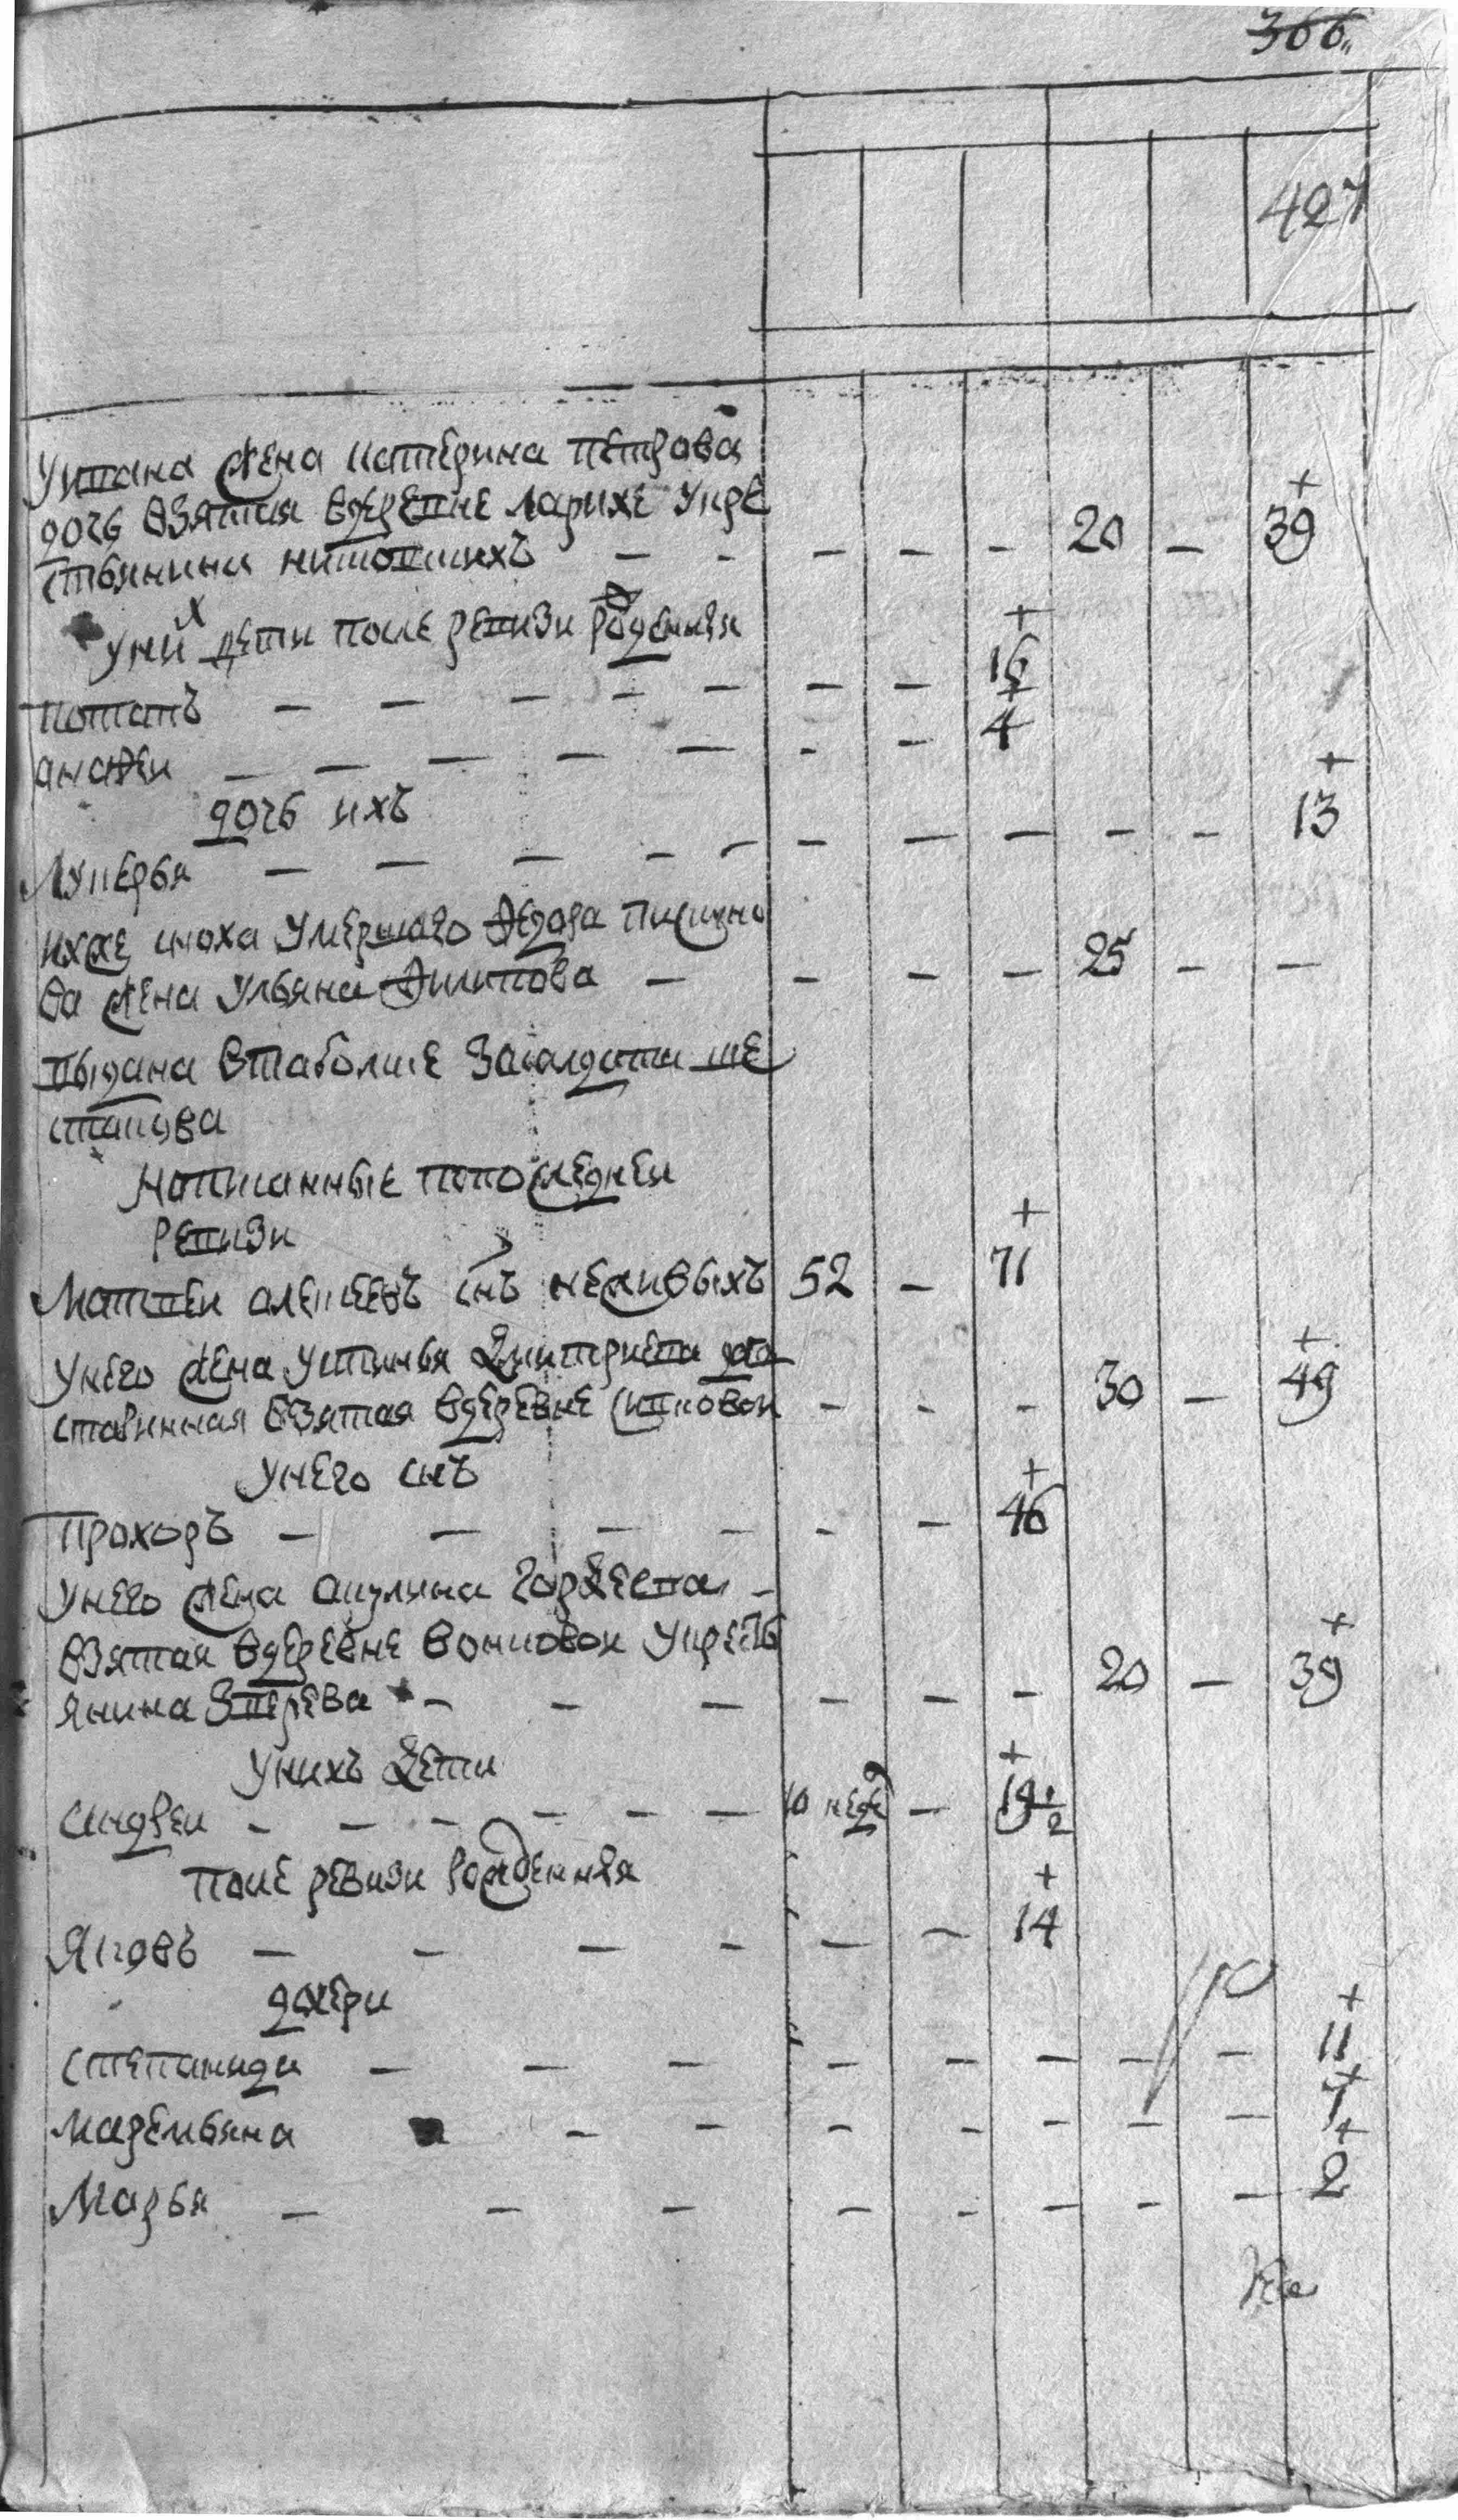 366
427
У ивана жена катерина петрова
дочь взятая вдеревне ларихе укре
стьянина никовшихъ — — — — — 20 — 39
У них дети после ревизи рожденныя
потапъ — — — — — — — 16
андреи — — — — — — — 4
дочь ихъ
Лукерья — — — — — — — — — — 13
ихже сноха умершаго Федора
ва жена Ульяна Филипова — — — — 25 — —
выдана втаболске засалдата ше
стакова
Написанные попоследнеи
ревизи
Матвеи алексеевъ снъ неживыхъ 52 — 71
Унего жена устинья дмитриева
ставинная взятая вдеревне — — — 30 — 49
Унего снъ
Прохоръ — — — — — — 46
Унего жена акулина гордеева
взятая вдеревне вонковои укресть
янина Зверева — — — — — — 20 — 39
Унихъ дети
Андреи — — — — — — 10 неде — 19 1/2
после ревизи рожденныя
Яковъ — — — — — — 14
дочери
степанида — — — — — — — — 11
маремьяна — — — — — — — 7
Марья — — — — — — — — 2